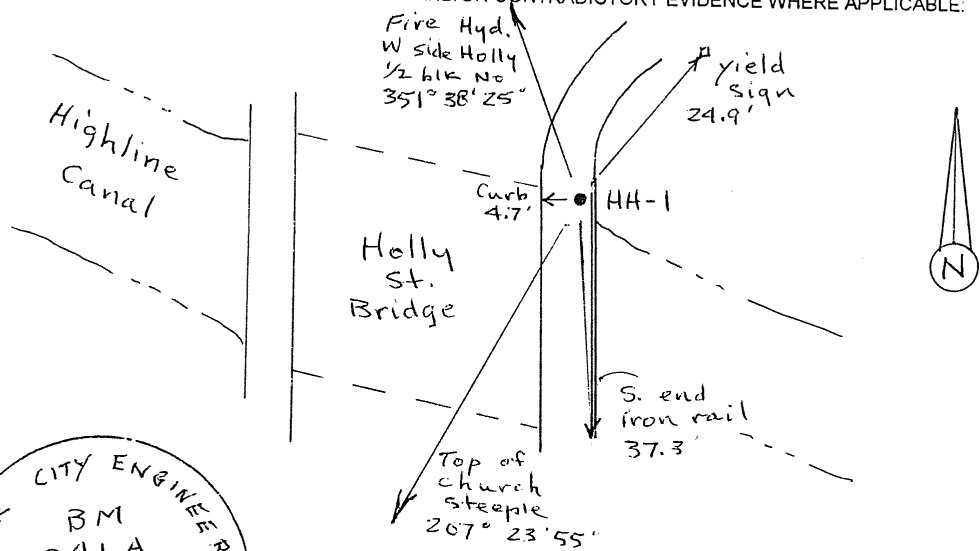 CONTRADICTORY EVIDENCE WHERE APPLICABLE:
Fire Hyd.
W side Holly
1/2 blk No
351° 38' 25"
yield
sign
24.9'
Highline
Canal
Curb
4.7'
HH-1
Holly
St.
Bridge
N
S. end
iron rail
37.3'
Top of
church
steeple
207° 23' 55"
CITY ENGINEER
BM